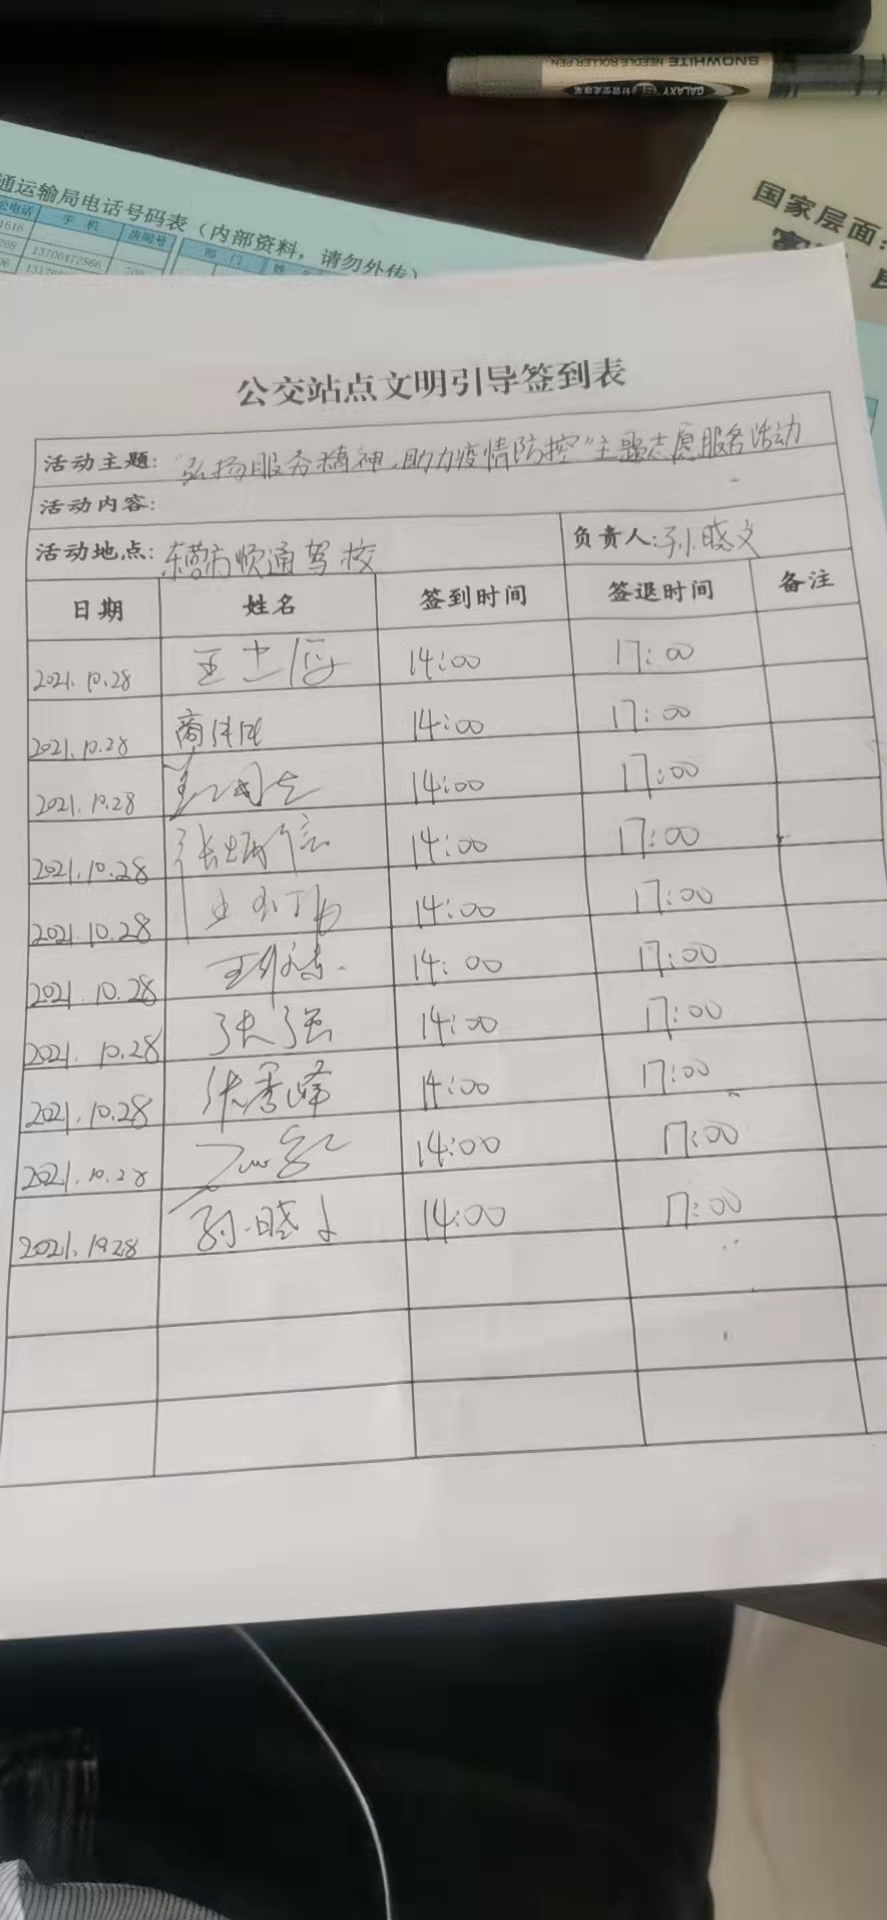 SNOWHITE NEEDLE ROLLER PEN
GALAXY
通运输局电话号码表（内部资料，请勿外传）
公电话 手 机 房间号 部 门 姓
1616
268 13706472866 70
06
国家层面：
公交站点文明引导签到表
活动主题: "弘扬服务精神,助力疫情防控"主题志愿服务活动
活动内容:
活动地点: 东营市顺通驾校 负责人: 孙晓文
日期 姓名 签到时间 签退时间 备注
2021.10.28 14:00 17:00
2021.10.28 商伟民 14:00 17:00
2021.10.28 14:00 17:00
2021.10.28 张炳信 14:00 17:00
2021.10.28 14:00 17:00
2021.10.28 14:00 17:00
2021.10.28 张强 14:00 17:00
2021.10.28 张秀峰 14:00 17:00
2021.10.28 14:00 17:00
2021.10.28 孙晓文 14:00 17:00